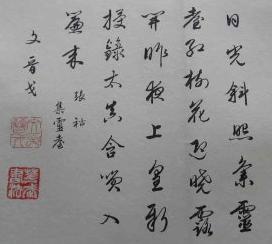 日光斜照集靈
臺紅樹花迎曉露
開昨夜上皇新
授籙太真含笑入
簾來
張祜
集靈臺
文晉戈